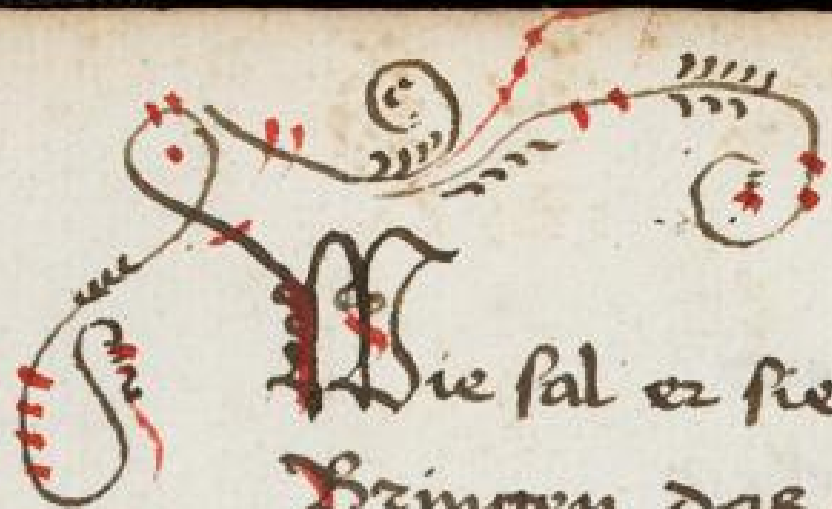 Wie sal er sie
Bringen das